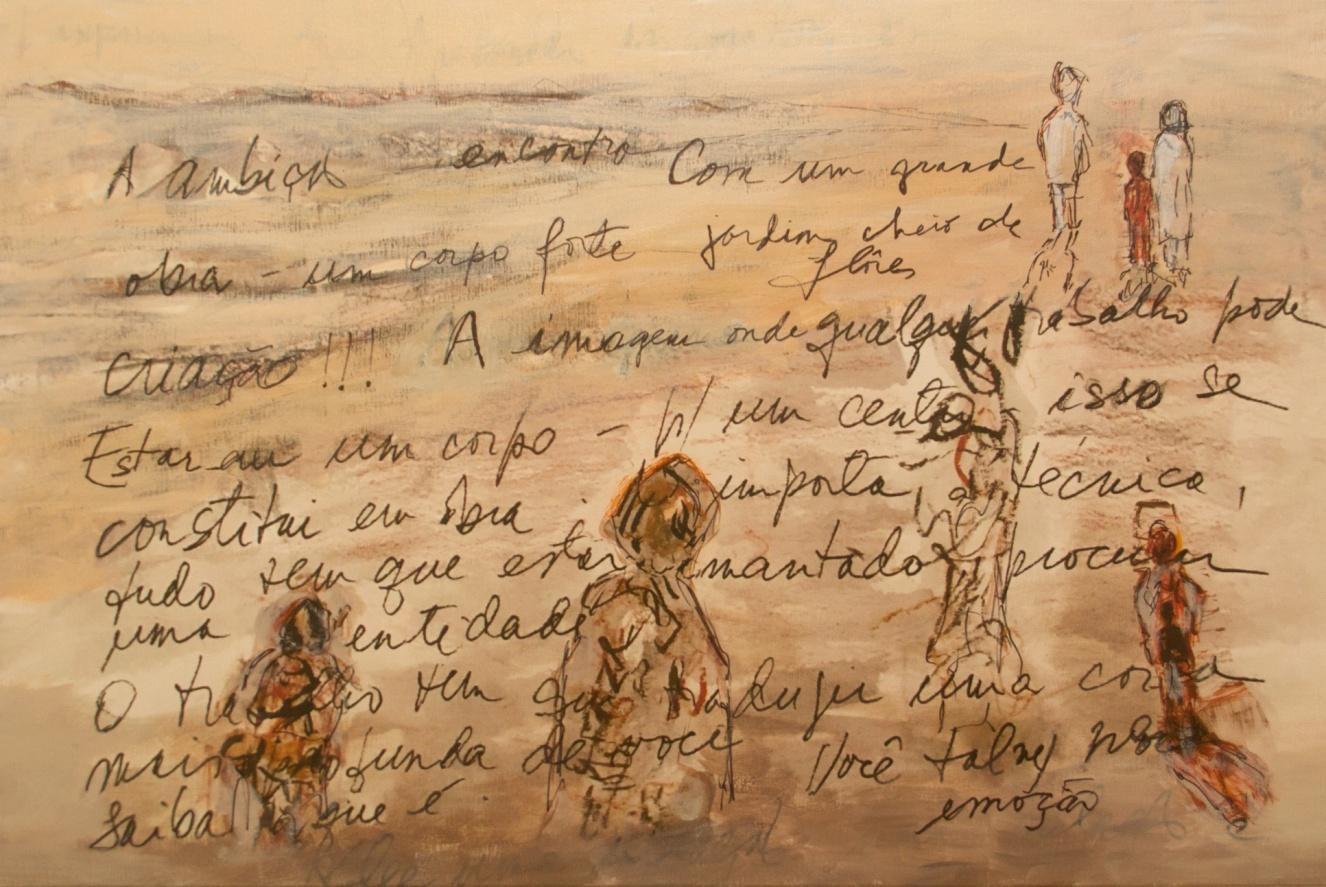 A ambiçã encontro Com um grande
obra - um corpo forte jardim cheio de
flôres
criação!!! A imagem onde qualquer trabalho pode
Estar um corpo - p/ um centro - isso se
constitui em óbra importa, a técnica,
tudo tem que estar imantado procurar
uma entidade
O trabalho tem que traduzir uma coisa
mais profunda de você Você talvez não
saiba o que é.
emoção